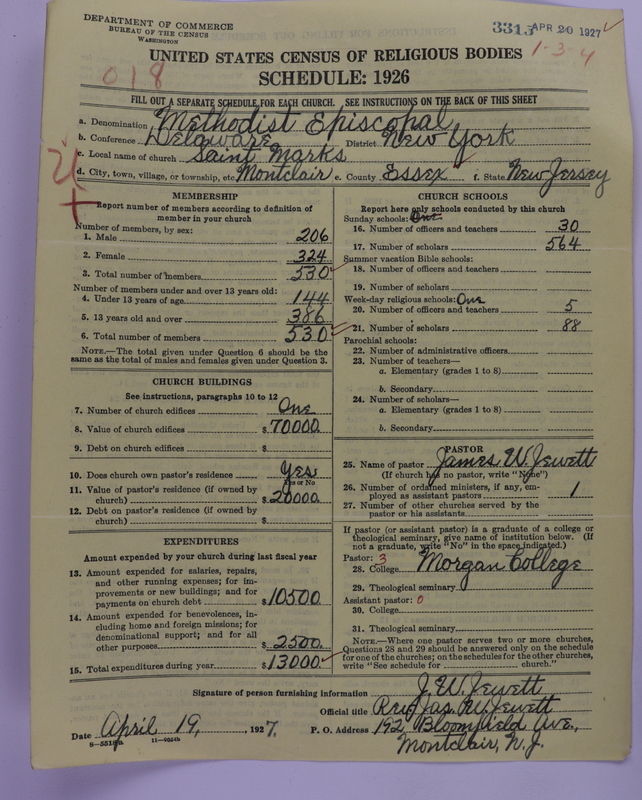 DEPARTMENT OF COMMERCE
BUREAU OF THE CENSUS
WASHINGTON
3313 APR 20 1927
1-3-4
UNITED STATES CENSUS OF RELIGIOUS BODIES
018
SCHEDULE: 1926
FILL OUT A SEPARATE SCHEDULE FOR EACH CHURCH. SEE INSTRUCTIONS ON THE BACK OF THIS SHEET
a. Denomination Methodist Episcopal
b. Conference Delaware District New York
c. Local name of church Saint Marks
d. City, town, village, or township, etc. Montclair e. County Essex f. State New Jersey
MEMBERSHIP
Report number of members according to definition of
member in your church
Number of members, by sex:
1. Male 206
2. Female 324
3. Total number of members 530
Number of members under and over 13 years old:
4. Under 13 years of age 144
5. 13 years old and over 386
6. Total number of members 530
NOTE.—The total given under Question 6 should be
same as the total of males and females given under Question 3.
CHURCH BUILDINGS
See instructions, paragraphs 10 to 12
7. Number of church edifices One
8. Value of church edifices $ 70000
9. Debt on church edifices $
10. Does church own pastor's residence Yes
Yes or No
11. Value of pastor's residence (if owned by
church) $ 20000
12. Debt on pastor's residence (if owned by
church) $
EXPENDITURES
Amount expended by your church during last fiscal year
13. Amount expended for salaries, repairs,
and other running expenses; for im-
provements or new buildings; and for
payments on church debt $ 10500
14. Amount expended for benevolences, in-
cluding home and foreign missions; for
denominational support; and for all
other purposes $ 2500
15. Total expenditures during year $ 13000
CHURCH SCHOOLS
Report here only schools conducted by this church
Sunday schools: One
16. Number of officers and teachers 30
17. Number of scholars 564
Summer vacation Bible schools:
18. Number of officers and teachers
19. Number of scholars
Week-day religious schools: One
20. Number of officers and teachers 5
21. Number of scholars 88
Parochial schools:
22. Number of administrative officers
23. Number of teachers—
a. Elementary (grades 1 to 8)
b. Secondary
24. Number of scholars—
a. Elementary (grades 1 to 8)
b. Secondary
PASTOR
25. Name of pastor James W. Jewett
(If church has no pastor, write "None")
26. Number of ordained ministers, if any, em-
ployed as assistant pastors 1
27. Number of other churches served by the
pastor or his assistants
If pastor (or assistant pastor) is a graduate of a college or
theological seminary, give name of institution below. (If
not a graduate, write "No" in the space indicated.)
Pastor: 3
28. College Morgan College
29. Theological seminary
Assistant pastor: 0
30. College
31. Theological seminary
NOTE.—Where one pastor serves two or more churches,
Questions 28 and 29 should be answered only on the schedule
for one of the churches; on the schedules for the other churches,
write "See schedule for church."
Signature of person furnishing information J. W. Jewett
Official title Jas. W. Jewett
Date April 19, 1927. P. O. Address 192 Bloomfield Ave.,
Montclair, N. J.